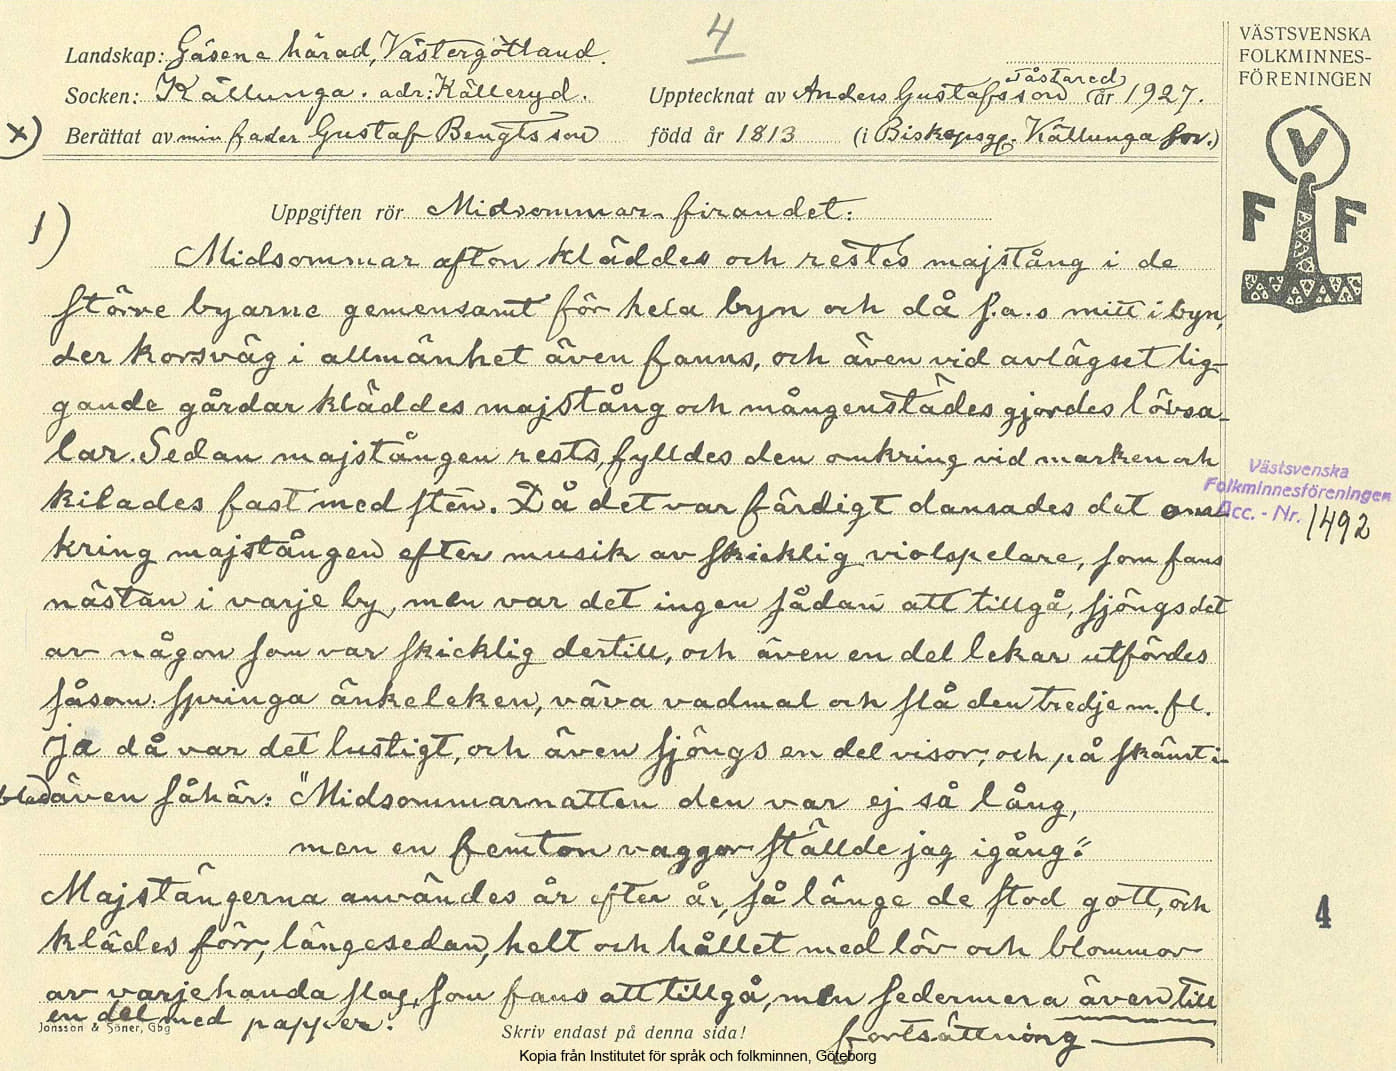 4
Landskap: Gäsene härad, Västergötland.
Socken: Källunga. adr: Källeryd.
Upptecknat av Anders Gustafsson Tåstared år 1927.
x) Berättat av min fader Gustaf Bengtsson född år 1813 (i Biskopsgd. Källunga sn.)
VÄSTSVENSKA
FOLKMINNES-
FÖRENINGEN
V
F F
1)
Uppgiften rör Midsommar-firandet:
Midsommar afton kläddes och restes majstång i de
större byarne gemensamt för hela byn och då s.a.s mitt i byn,
der korsväg i allmänhet även fanns, och även vid avlägset lig-
gande gårdar kläddes majstång och mångenstädes gjordes lövsa-
lar. Sedan majstången rests, fylldes den omkring vid marken och
kilades fast med sten. Då det var färdigt dansades det om-
kring majstången efter musik av skicklig violspelare, som fans
nästan i varje by, men var det ingen sådan att tillgå, sjöngs det
av någon som var skicklig dertill, och även en del lekar utfördes
såsom: springa änkeleken, väva vadmal och slå den tredje m. fl.
Ja då var det lustigt, och även sjöngs en del visor, och på skämt i-
bland även såhär: "Midsommarnatten den var ej så lång,
men en femton vaggor ställde jag igång."
Majstängerna användes år efter år, så länge de stod gott, och
kläddes förr, längesedan, helt och hållet med löv och blommor
av varjehanda slag, som fans att tillgå, men sedermera även till
en del med papper.
fortsättning
Jonsson & Söner, Gbg
Skriv endast på denna sida!
Västsvenska
Folkminnesföreningen
Acc. - Nr. 1492
4
Kopia från Institutet för språk och folkminnen, Göteborg